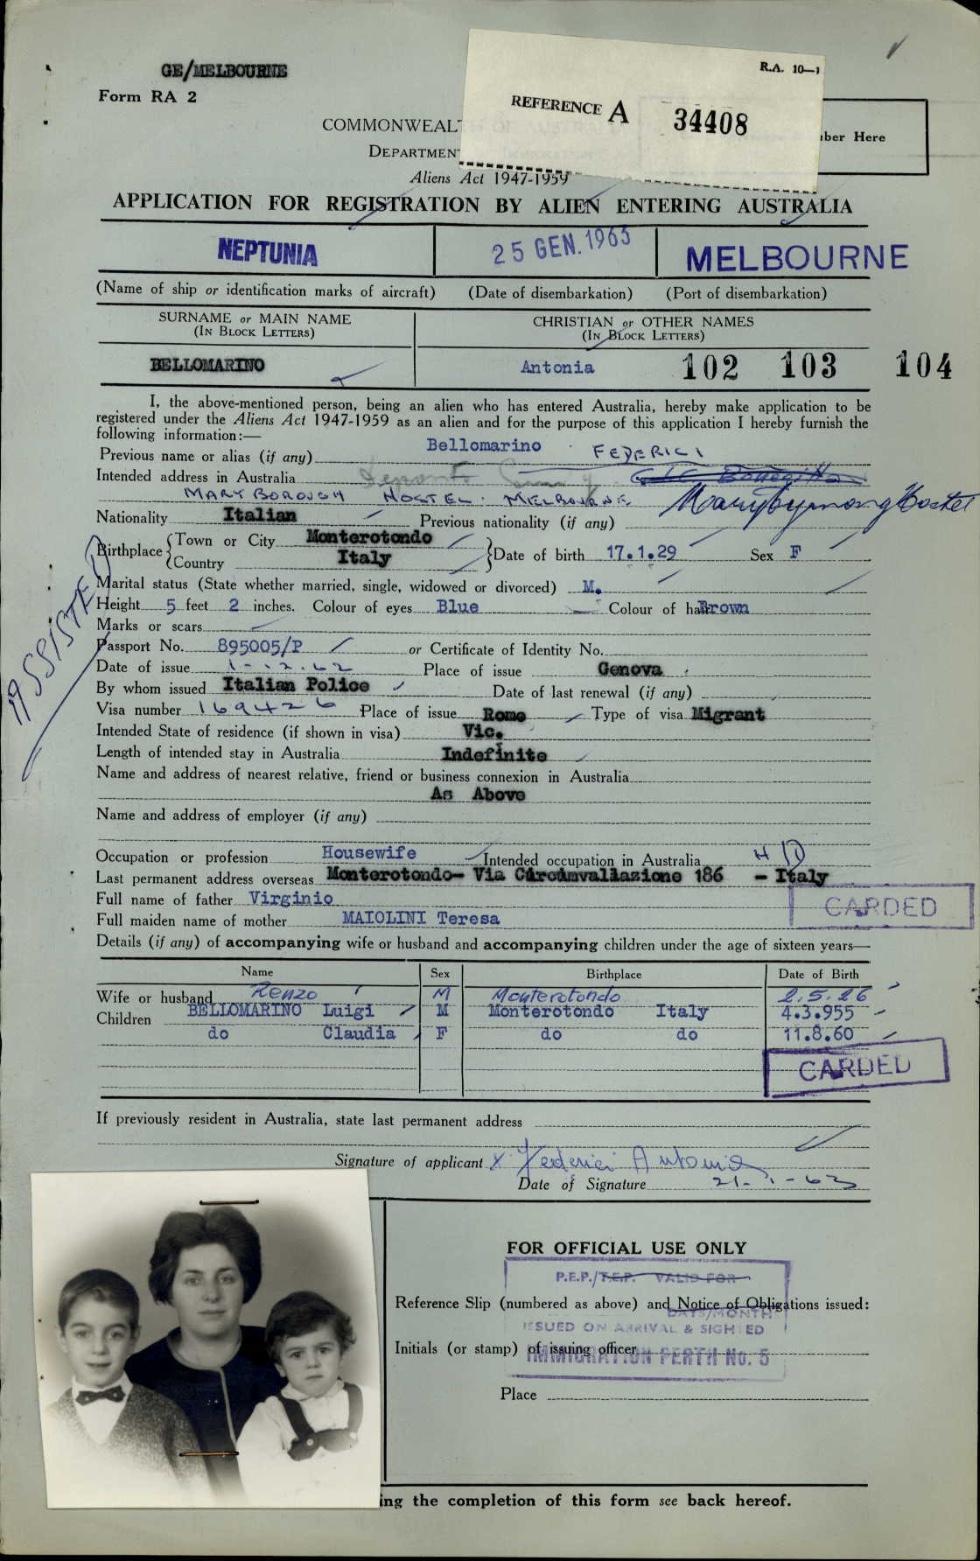 GE/MELBOURNE
Form RA 2
R.A. 10—1
REFERENCE A 34408
COMMONWEAL
DEPARTMEN
ber Here
Aliens Act 1947-1959
APPLICATION FOR REGISTRATION BY ALIEN ENTERING AUSTRALIA
NEPTUNIA 25 GEN. 1963 MELBOURNE
(Name of ship or identification marks of aircraft) (Date of disembarkation) (Port of disembarkation)
SURNAME or MAIN NAME CHRISTIAN or OTHER NAMES
(IN BLOCK LETTERS) (IN BLOCK LETTERS)
BELLOMARINO Antonia 102 103 104
I, the above-mentioned person, being an alien who has entered Australia, hereby make application to be
registered under the Aliens Act 1947-1959 as an alien and for the purpose of this application I hereby furnish the
following information:—
Previous name or alias (if any) Bellomarino FEDERICI
Intended address in Australia
MARYBOROUGH HOSTEL. MELBOURNE
Nationality Italian Previous nationality (if any)
Birthplace Town or City Monterotondo
Country Italy Date of birth 17.1.29 Sex F
Marital status (State whether married, single, widowed or divorced) M.
Height 5 feet 2 inches. Colour of eyes Blue Colour of hair Brown
Marks or scars
ASSISTED
Passport No. 895005/P or Certificate of Identity No.
Date of issue 1-12.62 Place of issue Genova
By whom issued Italian Police Date of last renewal (if any)
Visa number 169426 Place of issue Rome Type of visa Migrant
Intended State of residence (if shown in visa) Vic.
Length of intended stay in Australia Indefinite
Name and address of nearest relative, friend or business connexion in Australia
As Above
Name and address of employer (if any)
Occupation or profession Housewife Intended occupation in Australia H D
Last permanent address overseas Monterotondo- Via Circonvallazione 186 - Italy
Full name of father Virginio
CARDED
Full maiden name of mother MAIOLINI Teresa
Details (if any) of accompanying wife or husband and accompanying children under the age of sixteen years—
Name Sex Birthplace Date of Birth
Wife or husband Renzo M Monterotondo 2.5.26
Children BELLOMARINO Luigi M Monterotondo Italy 4.3.955
do Claudia F do do 11.8.60
CARDED
If previously resident in Australia, state last permanent address
Signature of applicant X Federici Antonia
Date of Signature 21-1-63
FOR OFFICIAL USE ONLY
P.E.P./T.E.P. VALID FOR
Reference Slip (numbered as above) and Notice of Obligations issued:
DAYS/MONTH
ISSUED ON ARRIVAL & SIGHTED
Initials (or stamp) of issuing officer
IMMIGRATION PERTH No. 5
Place
ing the completion of this form see back hereof.